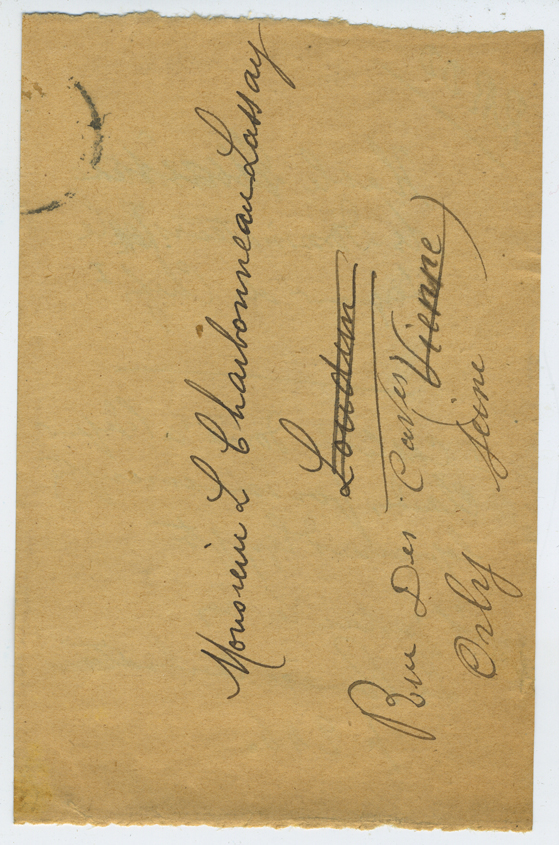 Monsieur L Charbonneau Lassay
Loudun
(Vienne)
Rue Des Cartes
Orly Seine